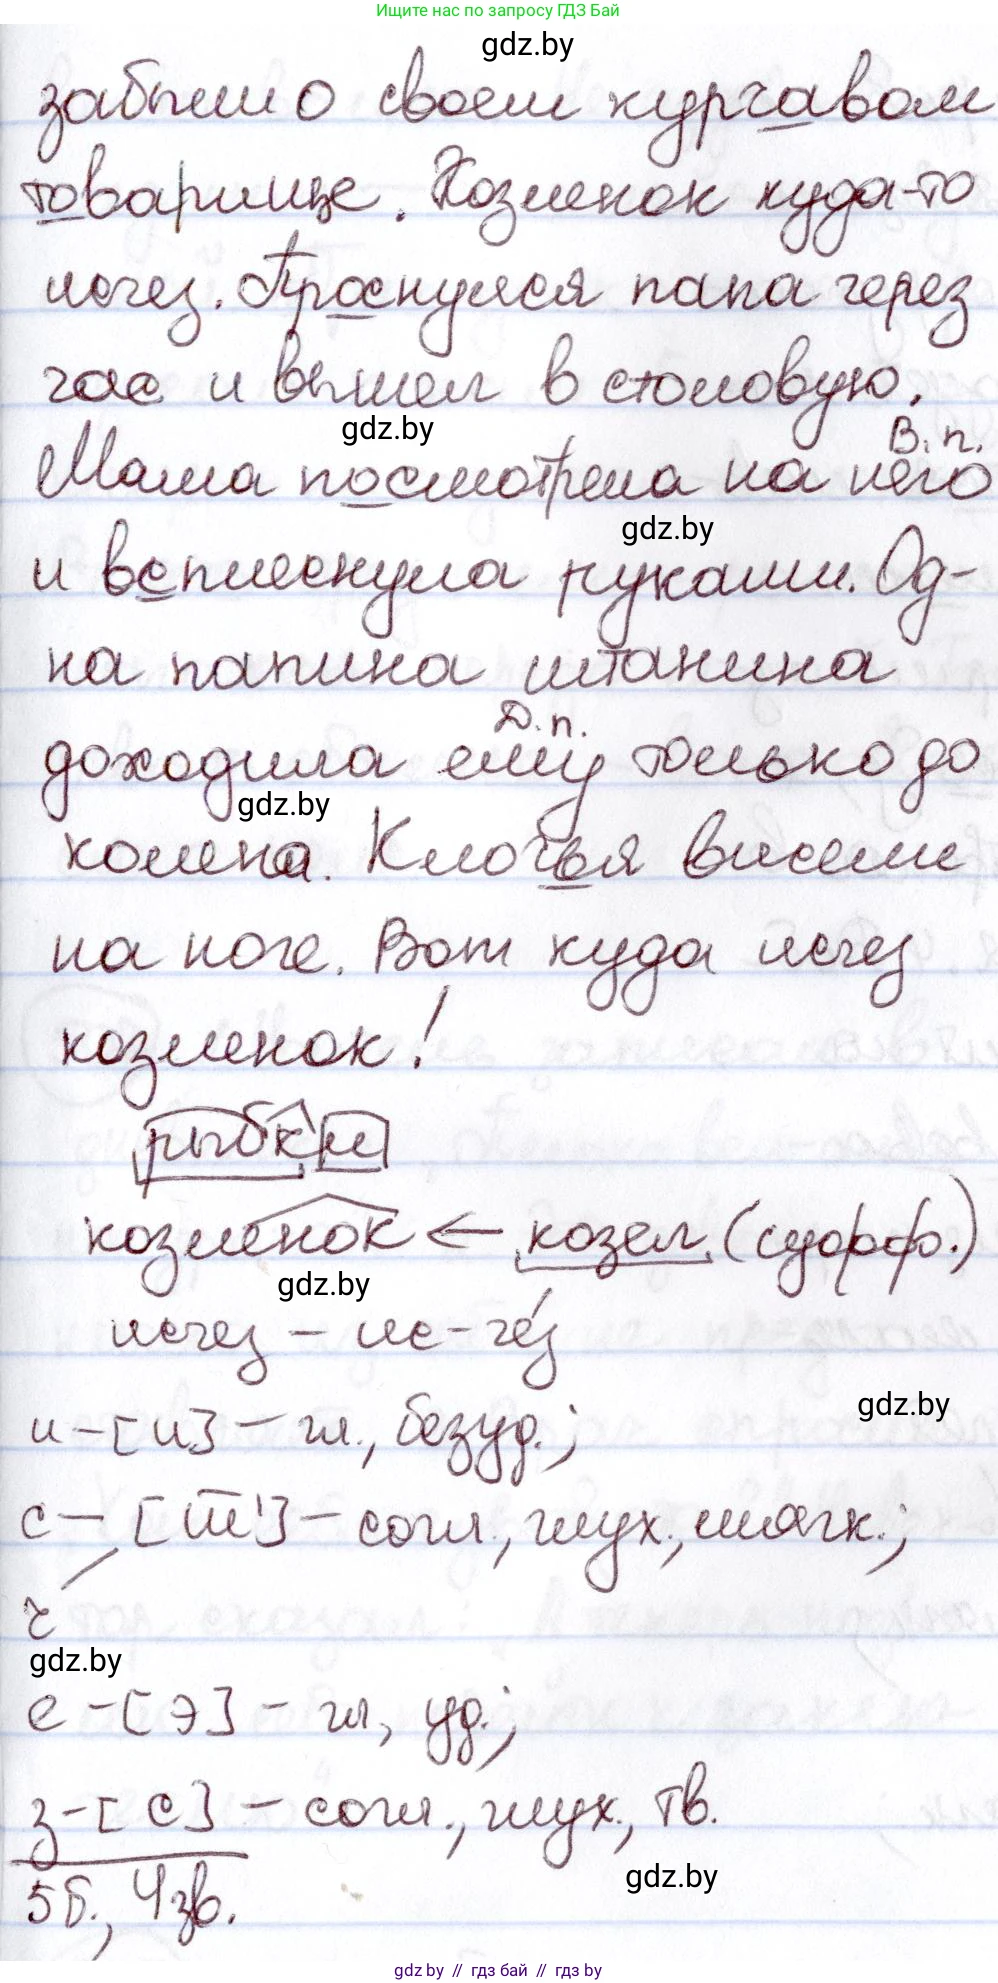 Ищите нас по запросу ГДЗ Бай
gdz.by
забыли о своем курчавом
товарище. Козленок куда-то
исчез. Проснулся папа через
час и вышел в столовую.
gdz.by
В. п.
Мама посмотрела на него
gdz.by
и всплеснула руками. Од-
на папина штанина
Д. п.
доходила ему только до
gdz.by
колена. Клочья висели
на ноге. Вот куда исчез
козленок!
рыбки
козленок ← козел (суфф.)
gdz.by
исчез – ис-че́з
gdz.by
и – [и] – гл., безуд.;
с – [ш̅'] – согл., глух., мягк.;
ч
gdz.by
е – [э] – гл, уд.;
з – [с] – согл., глух., тв.
gdz.by
5 б., 4 зв.
gdz.by // гдз бай // gdz.by